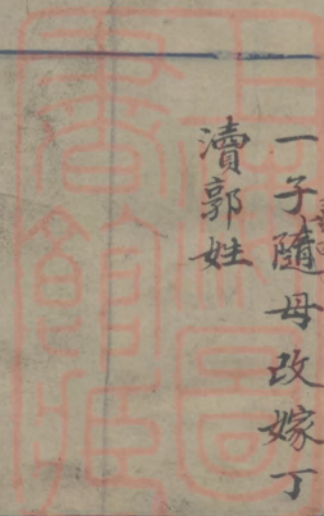 一子隨母改嫁丁
瀆郭姓